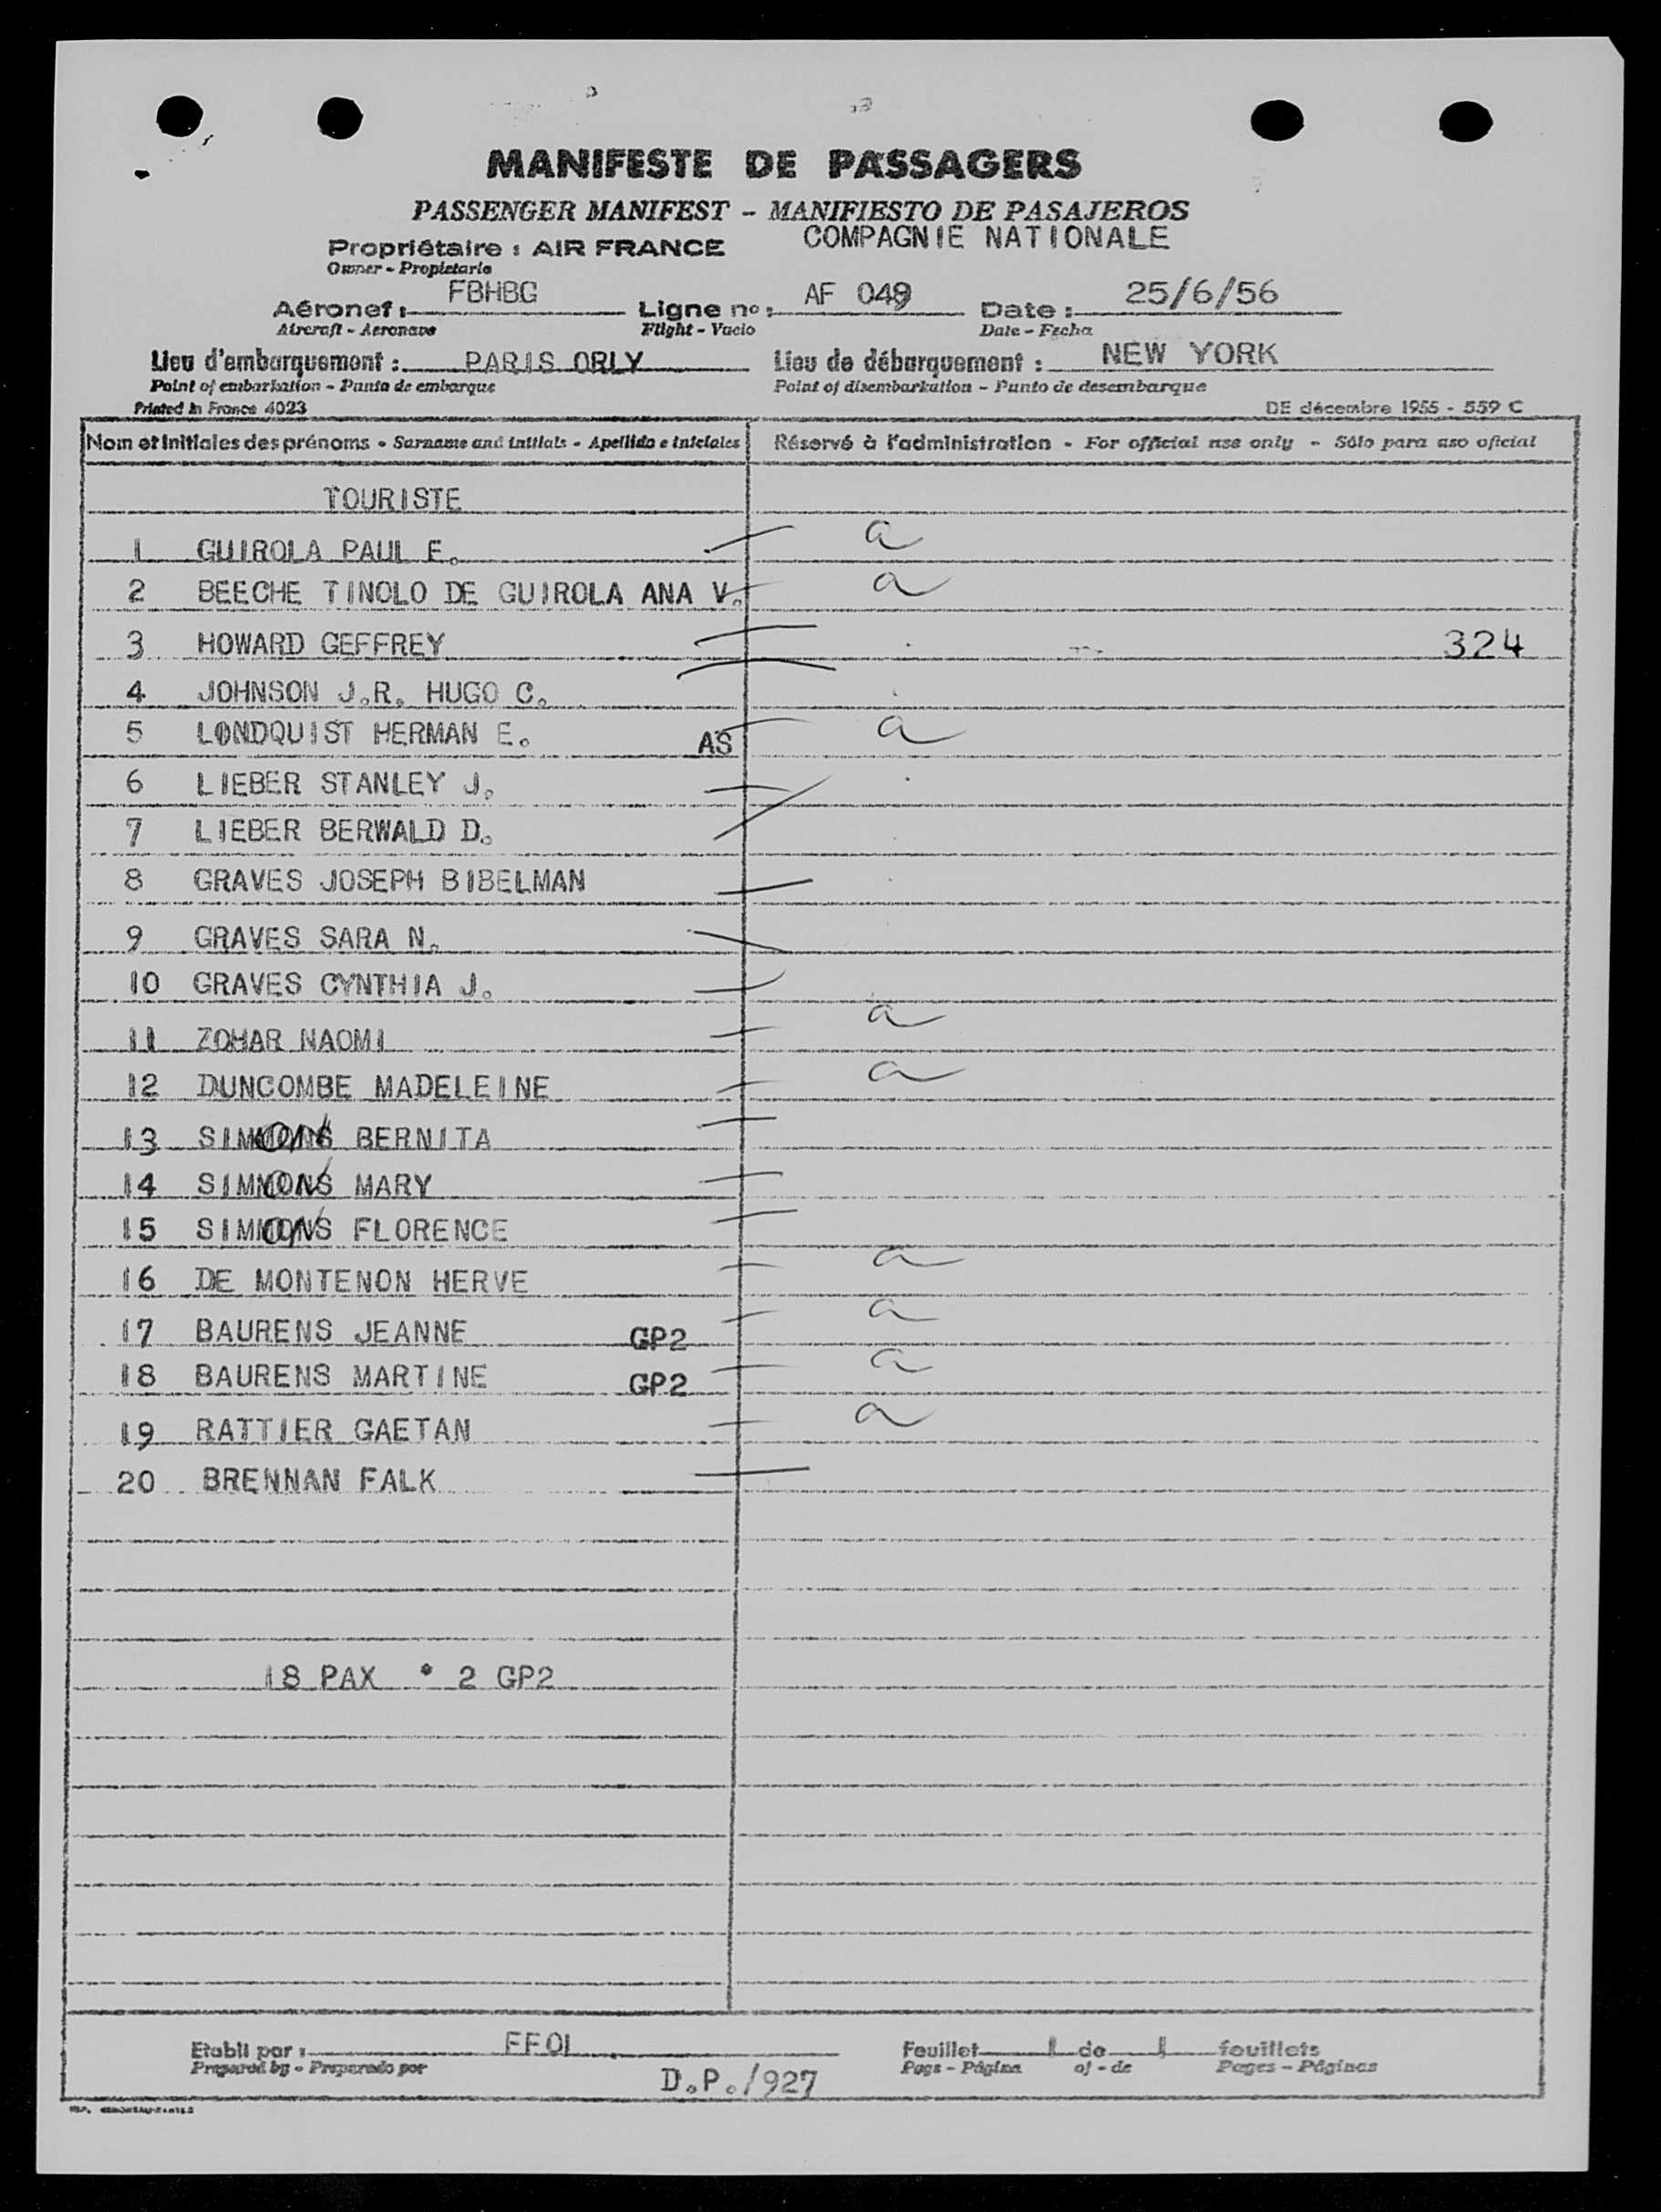 MANIFESTE DE PASSAGERS
PASSENGER MANIFEST - MANIFIESTO DE PASAJEROS
Propriétaire : AIR FRANCE COMPAGNIE NATIONALE
Owner - Propietario
Aéronef : FBHBG Ligne no : AF 049 Date : 25/6/56
Aircraft - Aeronave Flight - Vuelo Date - Fecha
Lieu d'embarquement : PARIS ORLY Lieu de débarquement : NEW YORK
Point of embarkation - Punto de embarque Point of disembarkation - Punto de desembarque
Printed in France 4023 DE décembre 1955 - 559 C
Nom et initiales des prénoms - Surname and initials - Apellido e iniciales Réservé à l'administration - For official use only - Sólo para uso oficial
TOURISTE
1 GUIROLA PAUL E. a
2 BEECHE TINOLO DE GUIROLA ANA V. a
3 HOWARD GEFFREY 324
4 JOHNSON J.R. HUGO C.
5 LONDQUIST HERMAN E. AS a
6 LIEBER STANLEY J.
7 LIEBER BERWALD D.
8 GRAVES JOSEPH BIBELMAN
9 GRAVES SARA N.
10 GRAVES CYNTHIA J.
11 ZOHAR NAOMI a
12 DUNCOMBE MADELEINE a
13 SIMMONS BERNITA
14 SIMMONS MARY
15 SIMMONS FLORENCE
16 DE MONTENON HERVE a
17 BAURENS JEANNE GP2 a
18 BAURENS MARTINE GP2 a
19 RATTIER GAETAN a
20 BRENNAN FALK
18 PAX * 2 GP2
Etabli par : FFOI Feuillet 1 de 1 feuillets
Prepared by - Preparado por D.P./927 Page - Página of - de Pages - Páginas